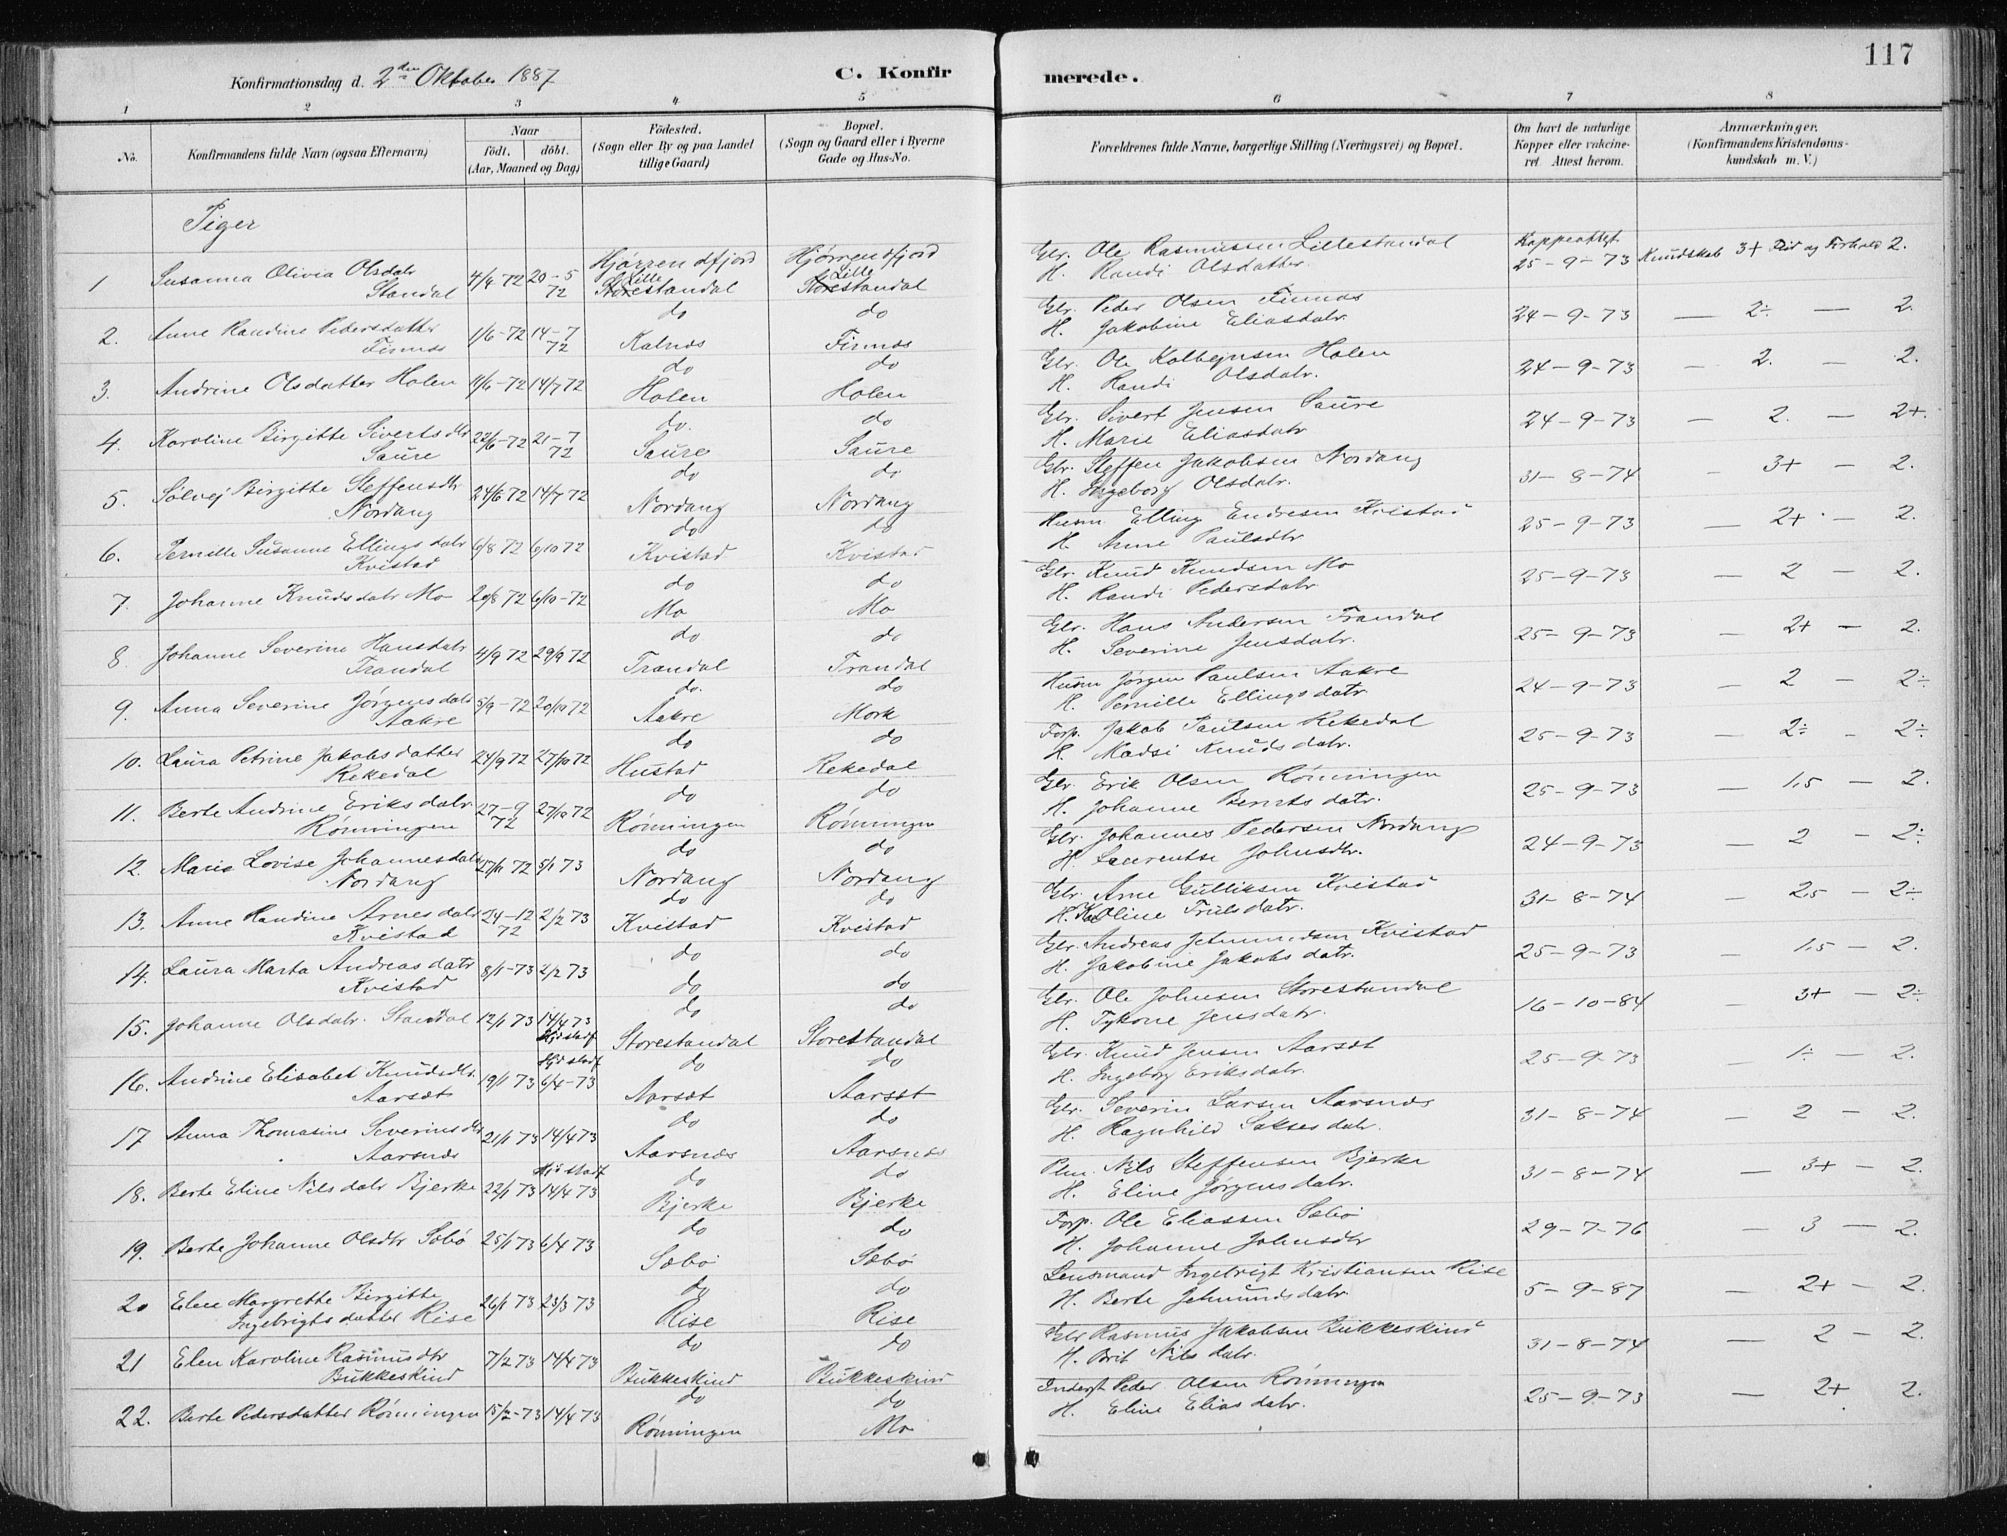 117
Konfirmationsdag d. 2den Oktober 1887 C. Konfirmerede.
1 2 3 4 5 6 7 8
No. Konfirmandens fulde Navn (ogsaa Efternavn) Naar födt. döbt. (Aar, Maaned og Dag) Födested. (Sogn eller By og paa Landet tillige Gaard) Bopæl. (Sogn og Gaard eller i Byerne Gade og Hus-No. Forældrenes fulde Navne, borgerlige Stilling (Næringsvei) og Bopæl. Om havt de naturlige Kopper eller vakcineret. Attest herom. Anmærkninger. (Konfirmandens Kristendomskundskab m. V.)
Piger
1 Susanna Olivia Olsdatr Standal 4/4 72 20-5 72 Hjørrendfjord Lille Storestandal Hjørrendfjord Lille Storestandal Gbr. Ole Rasmussen Lillestandal H. Randi Olsdatter Koppeattest 25-9-73 Kundskab 3+ Flid og Forhold 2.
2. Anne Randine Pedersdatter Finnes 1/6-72 14-7 72 do Kalnes do Finnes Gbr. Peder Olsen Finnes H. Jakobine Eliasdatr. 24-9-73 — 2÷ — 2.
3. Andrine Olsdatter Holen 11/6-72 14/7 72 do Holen do Holen Gbr. Ole Kolbejnsen Holen H. Randi Olsdatr. 24-9-73 — 2. — 2.
4. Karoline Birgitte Sivertsdtr Saure 22/6-72 21-7 72 do. Saure do Saure Gbr. Sivert Jensen Saure H. Marie Eliasdatr 24-9-73 — 2. — 2+.
5. Sølvej Birgitte Steffensdtr Nordang 24/6 72 14/7 72 do Nordang do Nordang Gbr. Steffen Jakobsen Nordang H. Ingeborg Olsdatr. 31-8-74 — 3+ — 2.
6. Pernille Susanne Ellingsdatr Kvistad 6/8 72 6/10 72 do Kvistad do Kvistad Husm. Elling Endresen Kvistad H. Anne Paulsdtr 25-9-73 — 2+ — 2.
7. Johanne Knudsdatr Mo 20/8 72 6/10-72 do Mo do Mo Gbr. Knud Knudsen Mo H. Randi Pedersdatr 25-9-73 — 2 — 2.
8. Johanne Severine Hansdatr Trandal 4/9 72 29/9 72 do Trandal do Trandal Gbr. Hans Andersen Trandal H. Severine Jensdatr. 25-9-73 — 2+ — 2.
9. Anna Severine Jørgensdatr Aakre 5/9-72 20/10 72 do. Aakre do Mork Husm Jørgen Paulsen Aakre H. Pernille Ellingsdatr 24-9-73 — 2 — 2÷
10. Laura Petrine Jakobsdatter Rekedal 24/9 72 27/10 72 do Hustad do Rekedal Forp. Jakob Paulsen Rekedal H. Madsi Knudsdatr. 25-9-73 — 2÷ - 2÷
11. Berte Andrine Eriksdatr Rønningen 27-9 72 27/10 72 do Rønningen do Rønningen Gbr. Erik Olsen Rønningen H. Johanne Berntsdatr. 25-9-73 — 1,5 — 2.
12. Marie Lovise Johannesdatr Nordang 5/1 73 do Nordang do Nordang Gbr. Johannes Pedersen Nordang H. Laurentse Johnsdtr. 24-9-73 — 2 — 2÷
13. Anne Randine Arnesdatr Kvistad 24-12 72 2/2 73 do Kvistad do Kvistad Gbr. Arne Gulliksen Kvistad H. Karoline Trulsdatr. 31-8-74 — 2,5 — 2÷
14. Laura Marta Andreasdatr Kvistad 8/1-73 2/2 73 do do do do Gbr. Andreas Kvistad H. Jakobine Jakobsdatr. 25-9-73 — 1,5 — 2.
15. Johanne Olsdatr. Standal 12/1 73 14/4 73 do Storestandal do Storestandal Gbr. Ole Johnsen Storestandal H. Jensdatr. 16-10-84 — 3+ — 2÷
16. Andrine Elisabet Knudsdtr. Aarset 19/1 73 6/4-73 do Aarset do Aarset Gbr. Knud Jensen Aarset H. Ingeborg Eriksdatr. 25-9-73 — 1÷ — 2.
17 Anna Thomasine Severinsdtr Aarsnes 21/1 73 14/4 73 do Aarsnes do Aarsnes Gbr. Severin Larsen Aarsnes H. Ragnhild Saksesdatr. 31-8-74 — 2 — 2.
18. Berte Eline Nilsdatr Bjerke 22/1 73 14/4 73 do Bjerke do Bjerke Nils Steffensen Bjerke H. Eline Jørgensdatr. 31-8-74 — 3+ — 2.
19. Berte Johanne Olsdtr Sæbø 25/1 73 6/4 73 do Sæbø do Sæbø Forp. Ole Eliassen Sæbø H. Johanne Johnsdtr 29-7-76 — 3 — 2.
20 Elen Margrethe Birgitte Ingebrigtsdatter Rise 26/1 73 23/3 73 do Rise do Rise Lensmand Ingebrigt Kristiansen Rise H. Berte Jetmundsdatr 5-9-87 — 2+ — 2.
21 Elen Karoline Rasmusdtr Bukkeskind 7/2 73 14/4 73 do Bukkeskind do Bukkeskind Gbr Rasmus Jakobsen Bukkeskind H. Brit Nilsdatr. 31-8-74 — 2 — 2.
22. Berte Pedersdatter Rønningen 15/2-73 14/4 73 do Rønningen do Mo Inderst Peder Olsen Rønningen H. Eline Eliasdatr. 25-9-73 — 2+ 2.